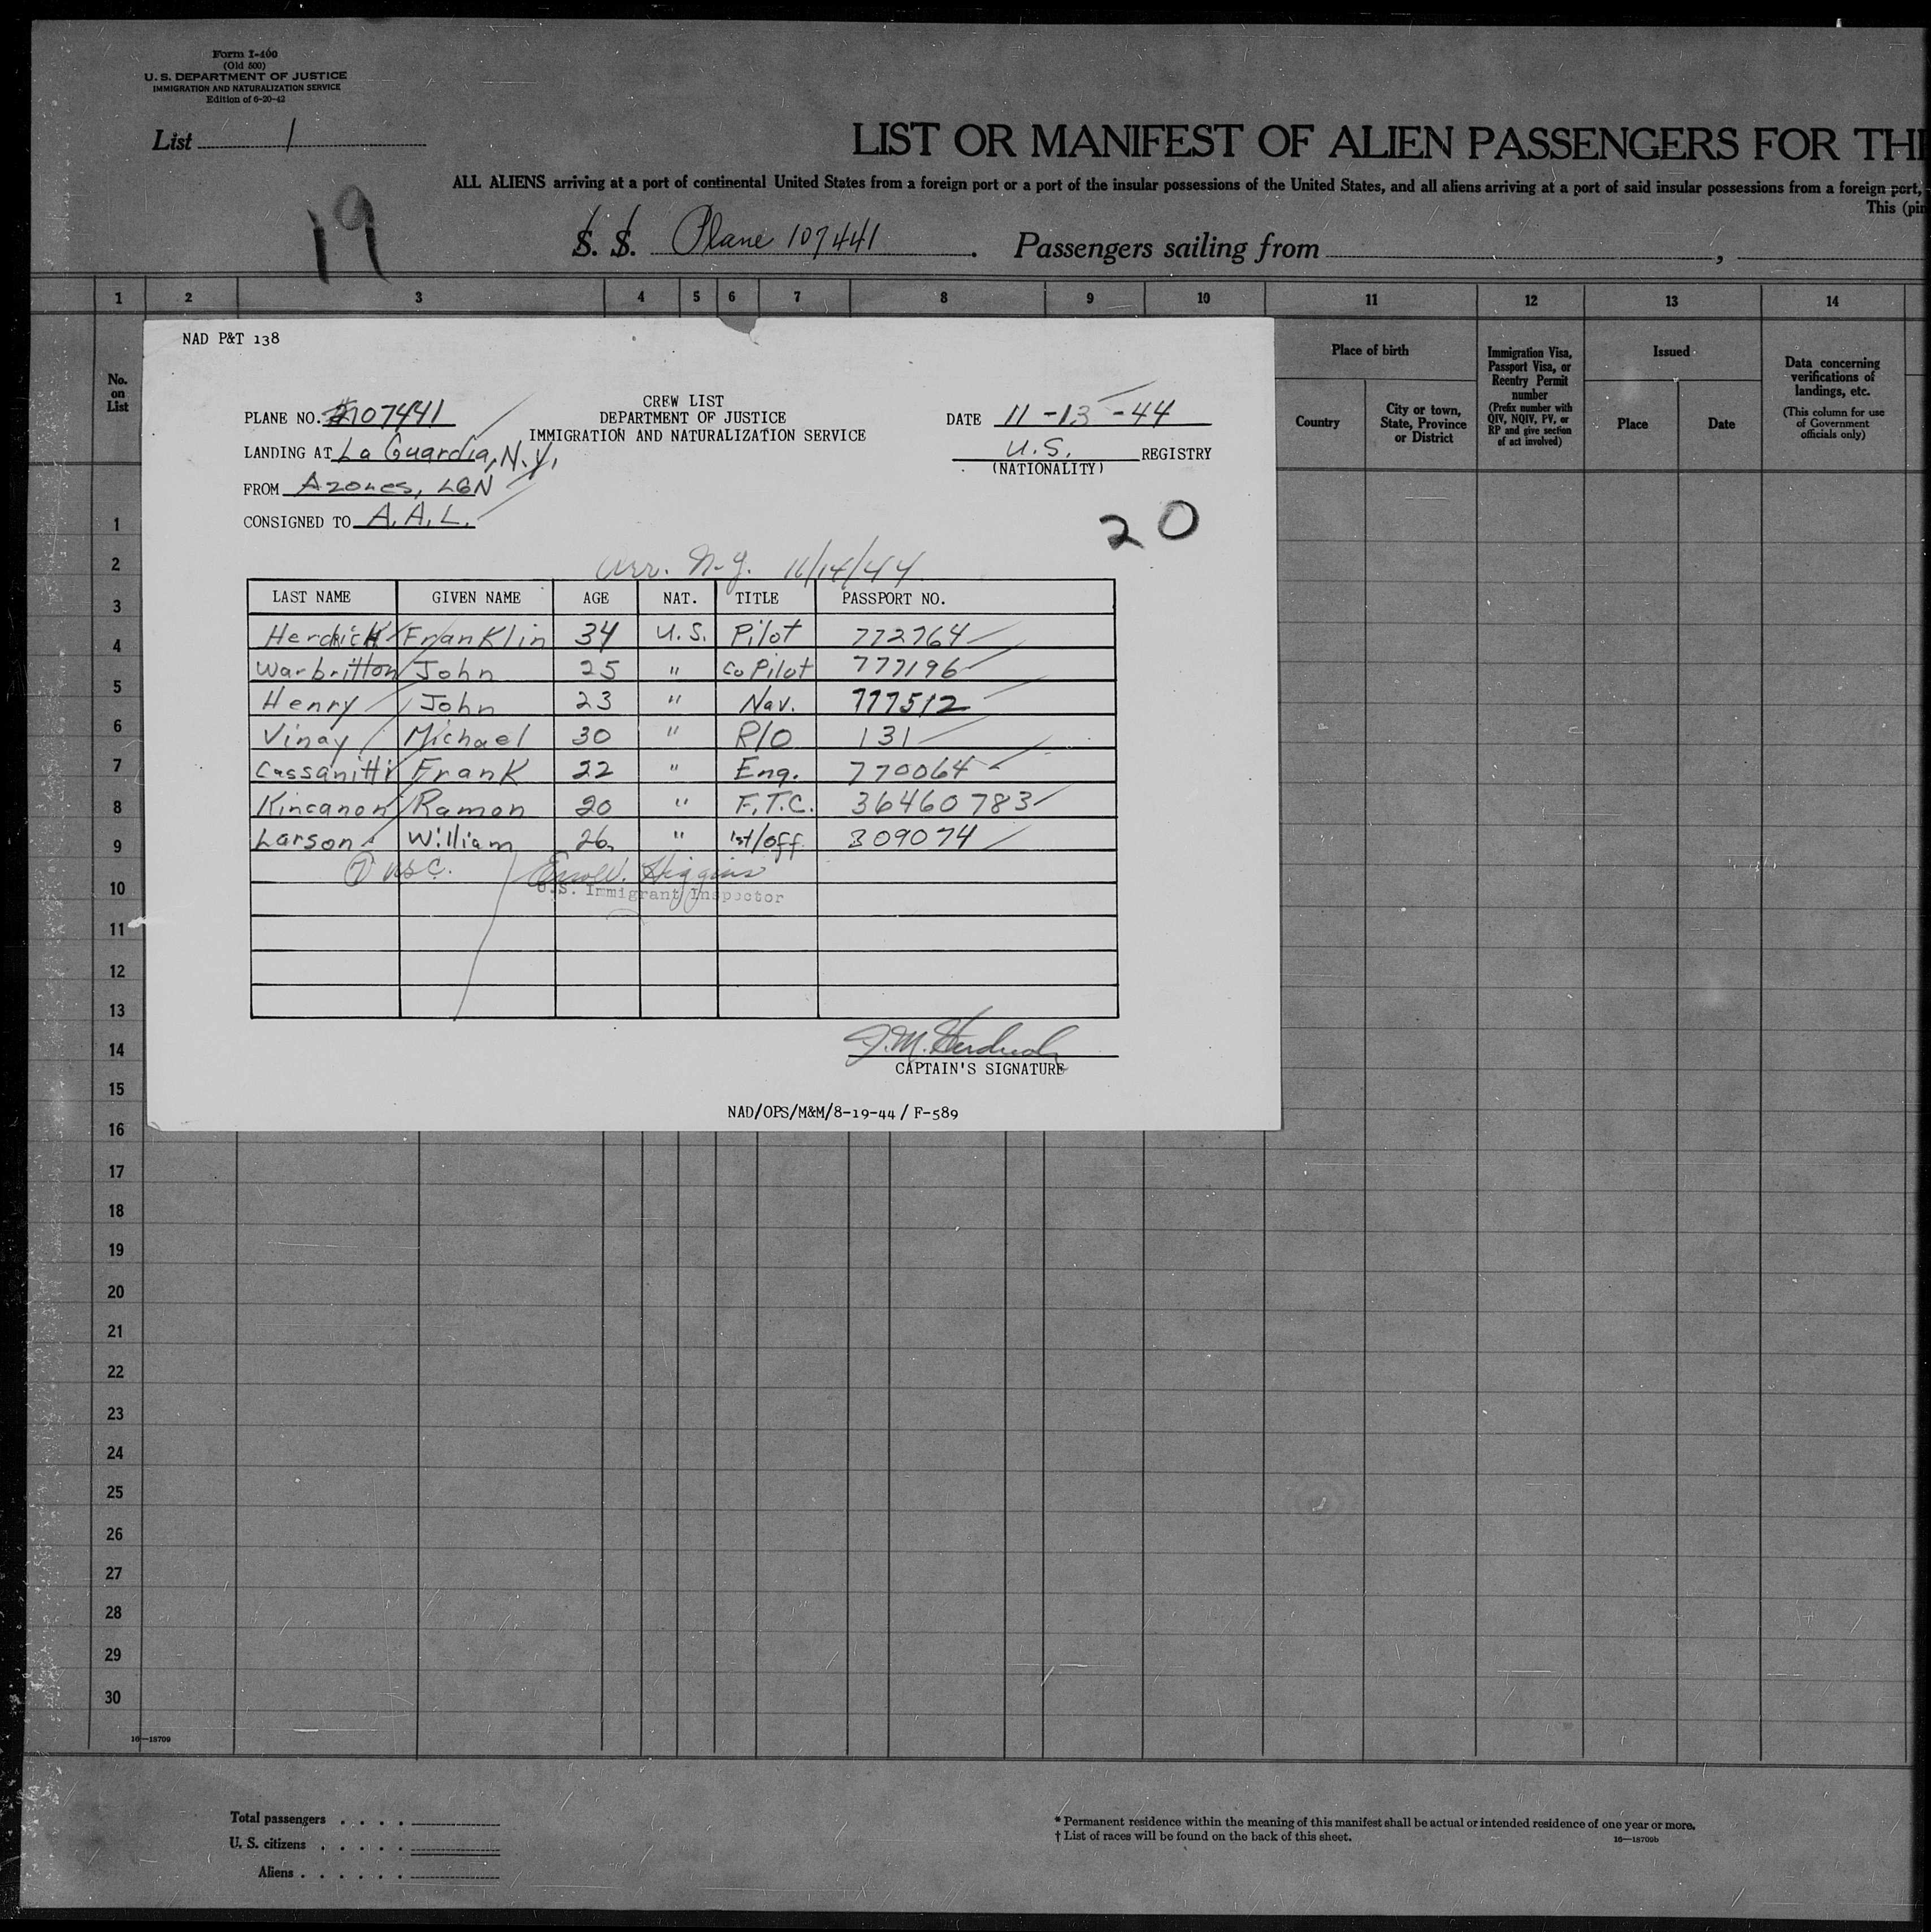 Form I-400
(Old 500)
U. S. DEPARTMENT OF JUSTICE
IMMIGRATION AND NATURALIZATION SERVICE
Edition of 6-20-42
List 1
LIST OR MANIFEST OF ALIEN PASSENGERS FOR THE
ALL ALIENS arriving at a port of continental United States from a foreign port or a port of the insular possessions of the United States, and all aliens arriving at a port of said insular possessions from a foreign port,
This (pin
19
S. S. Plane 107441. Passengers sailing from ,
1 2 3 4 5 6 7 8 9 10 11 12 13 14
No. on List
Place of birth
Country
City or town, State, Province or District
Immigration Visa, Passport Visa, or Reentry Permit number
(Prefix number with QIV, NQIV, PV, or RP and give section of act involved)
Issued
Place
Date
Data concerning verifications of landings, etc.
(This column for use of Government officials only)
NAD P&T 138
CREW LIST
DEPARTMENT OF JUSTICE
IMMIGRATION AND NATURALIZATION SERVICE
PLANE NO. #107441
LANDING AT La Guardia, N.Y.
FROM Azores, LGN
CONSIGNED TO A.A.L.
DATE 11-13-44
U.S. REGISTRY
(NATIONALITY)
20
Arr. N.Y. 11/14/44
LAST NAME GIVEN NAME AGE NAT. TITLE PASSPORT NO.
Herdrich Franklin 34 U.S. Pilot 772764
Warbritton John 25 " Co Pilot 777196
Henry John 23 " Nav. 777512
Vinay Michael 30 " R/O 131
Cassanitti Frank 22 " Eng. 770064
Kincanon Ramon 20 " F.T.C. 36460783
Larson William 26 " 1st/off 309074
7 USC. Higgins
U.S. Immigrant Inspector
F.M. Herdrich
CAPTAIN'S SIGNATURE
NAD/OPS/M&M/8-19-44 / F-589
1
2
3
4
5
6
7
8
9
10
11
12
13
14
15
16
17
18
19
20
21
22
23
24
25
26
27
28
29
30
16—18709
Total passengers . . . .
U. S. citizens . . . . .
Aliens . . . . . .
* Permanent residence within the meaning of this manifest shall be actual or intended residence of one year or more.
† List of races will be found on the back of this sheet.
16—18709b